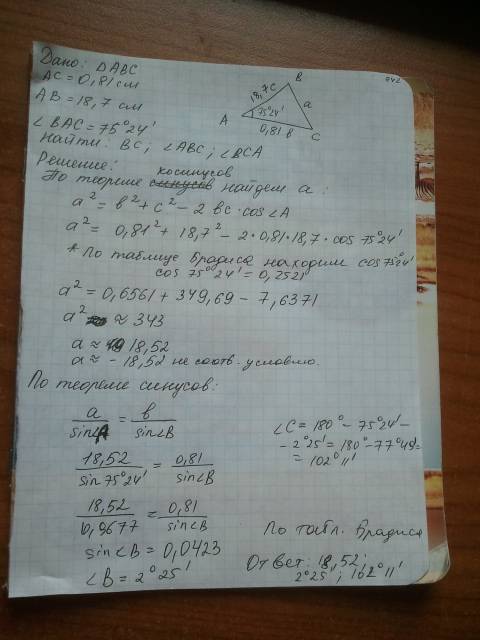 Дано: DABC
AC = 0,81 см
AB = 18,7 см
∠BAC = 75°24'
Найти: BC; ∠ABC; ∠BCA
B
18,7 c
a
A
75°24'
0,81 b
C
Решение:
косинусов
По теореме синусов найдем a:
a² = b² + c² - 2bc·cos∠A
a² = 0,81² + 18,7² - 2·0,81·18,7·cos 75°24'
* По таблице Брадиса находим cos 75°24'
cos 75°24' = 0,2521
a² = 0,6561 + 349,69 - 7,6371
a² ≈ 343
a ≈ 18,52
a ≈ - 18,52 не соотв. условию.
По теореме синусов:
a/sin∠A = b/sin∠B
18,52/sin 75°24' = 0,81/sin∠B
18,52/0,9677 = 0,81/sin∠B
sin∠B = 0,0423
∠B = 2°25'
∠C = 180° - 75°24' -
- 2°25' = 180° - 77°49' =
= 102°11'
По табл. Брадиса
Ответ: 18,52;
2°25'; 102°11'